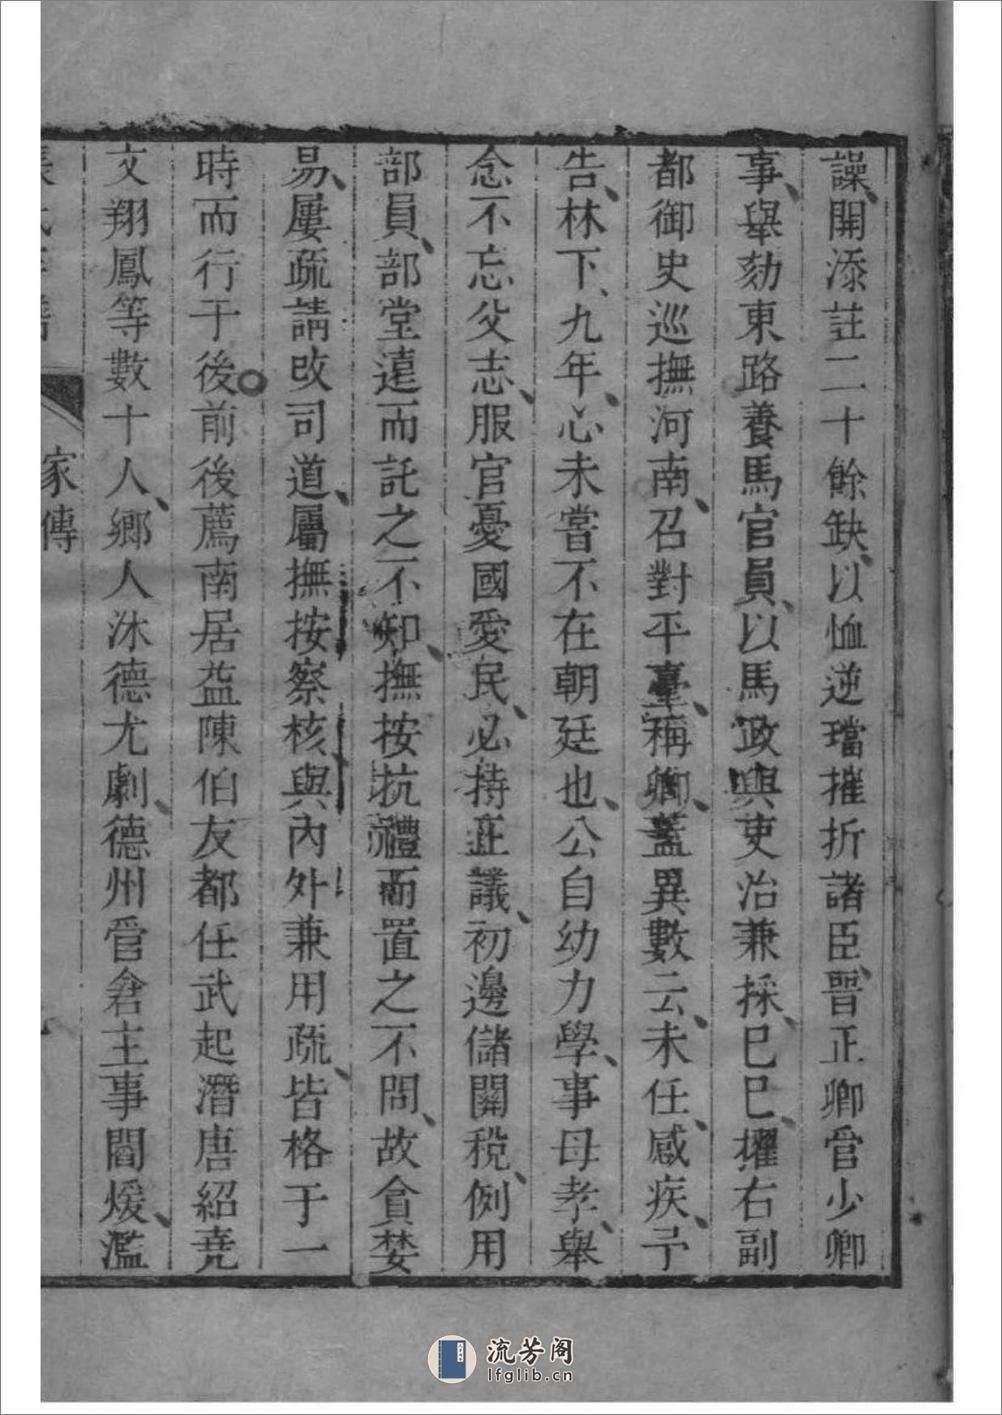 譟、開添註二十餘缺、以恤逆璫摧折諸臣、晉正卿管少卿
事、舉劾東路養馬官員、以馬政與吏治兼採、巳巳、擢右副
都御史巡撫河南、召對平臺、稱卿、蓋異數云、未任、感疾、予
告、林下、九年、心未嘗不在朝廷也、公自幼力學、事母孝、舉
念不忘父志、服官憂國愛民、必持正議、初邊儲關稅、例用
部員、部堂遠而託之不知、撫按抗禮而置之不問、故貪婪
易、屢疏請改司道、屬撫按察核、與內外兼用疏、皆格于一
時而行于後前後薦南居益陳伯友都任武起潛唐紹堯
文翔鳳等數十人、鄉人沐德尤劇、德州管倉主事閻煖、濫
家傳
流芳阁
lfglib.cn